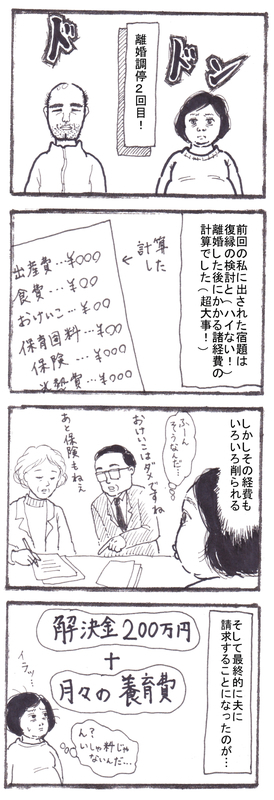 離婚調停2回目！
ドドン
前回の私に出された宿題は
復縁の検討と(ハイない！)
離婚した後にかかる諸経費の
計算でした(超大事！)
←計算
した
出産費…¥000
食費…¥00
おけいこ…¥00
保育園料…¥000
保険…¥000
光熱費…¥000
しかしその経費も
いろいろ削られる
ふーん
そうなんだ…
おけいこはダメですね
あと保険もねえ
そして最終的に夫に
請求することになったのが…
解決金200万円
+
月々の養育費
イラッ
ん？
いしゃ料じゃ
ないんだ…